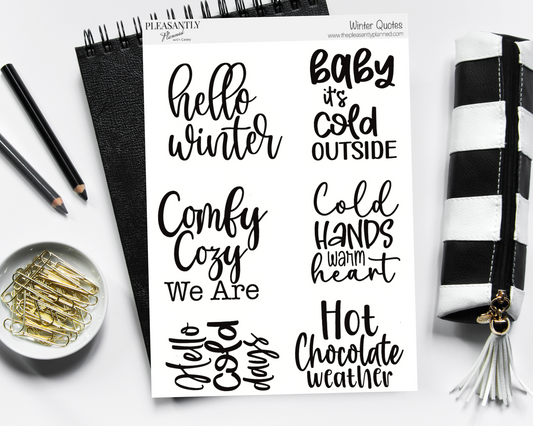 PLEASANTLY
Planned
WITH Casey
Winter Quotes
www.thepleasantlyplanned.com
hello
winter
baby
it's
cold
OUTSIDE
Comfy
Cozy
We Are
Cold
HANDS
warm
heart
Hello
cold
days
Hot
Chocolate
weather